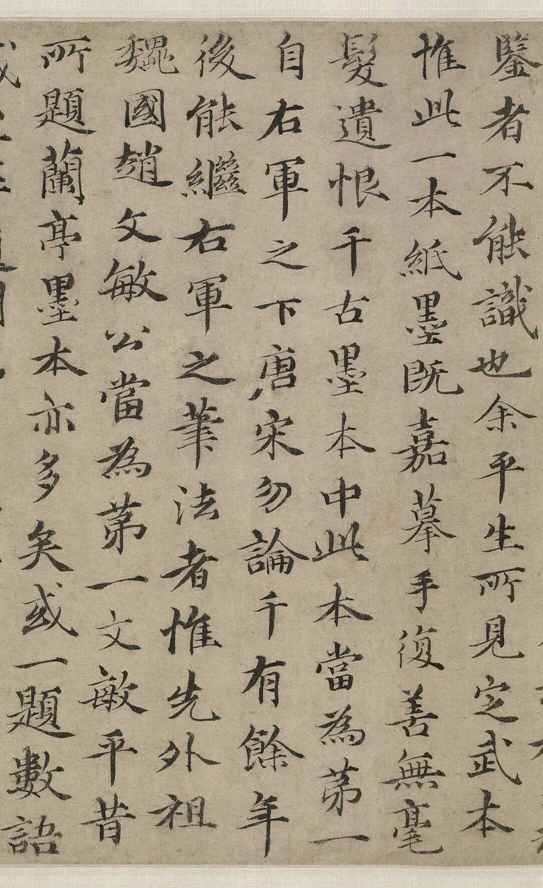 鑒者不能識也余平生所見定武本
惟此一本紙墨既嘉摹手復善無毫
髮遺恨千古墨本中此本當為第一
自右軍之下唐宋勿論千有餘年
後能繼右軍之筆法者惟先外祖
魏國趙文敏公當為第一文敏平昔
所題蘭亭墨本亦多矣或一題數語